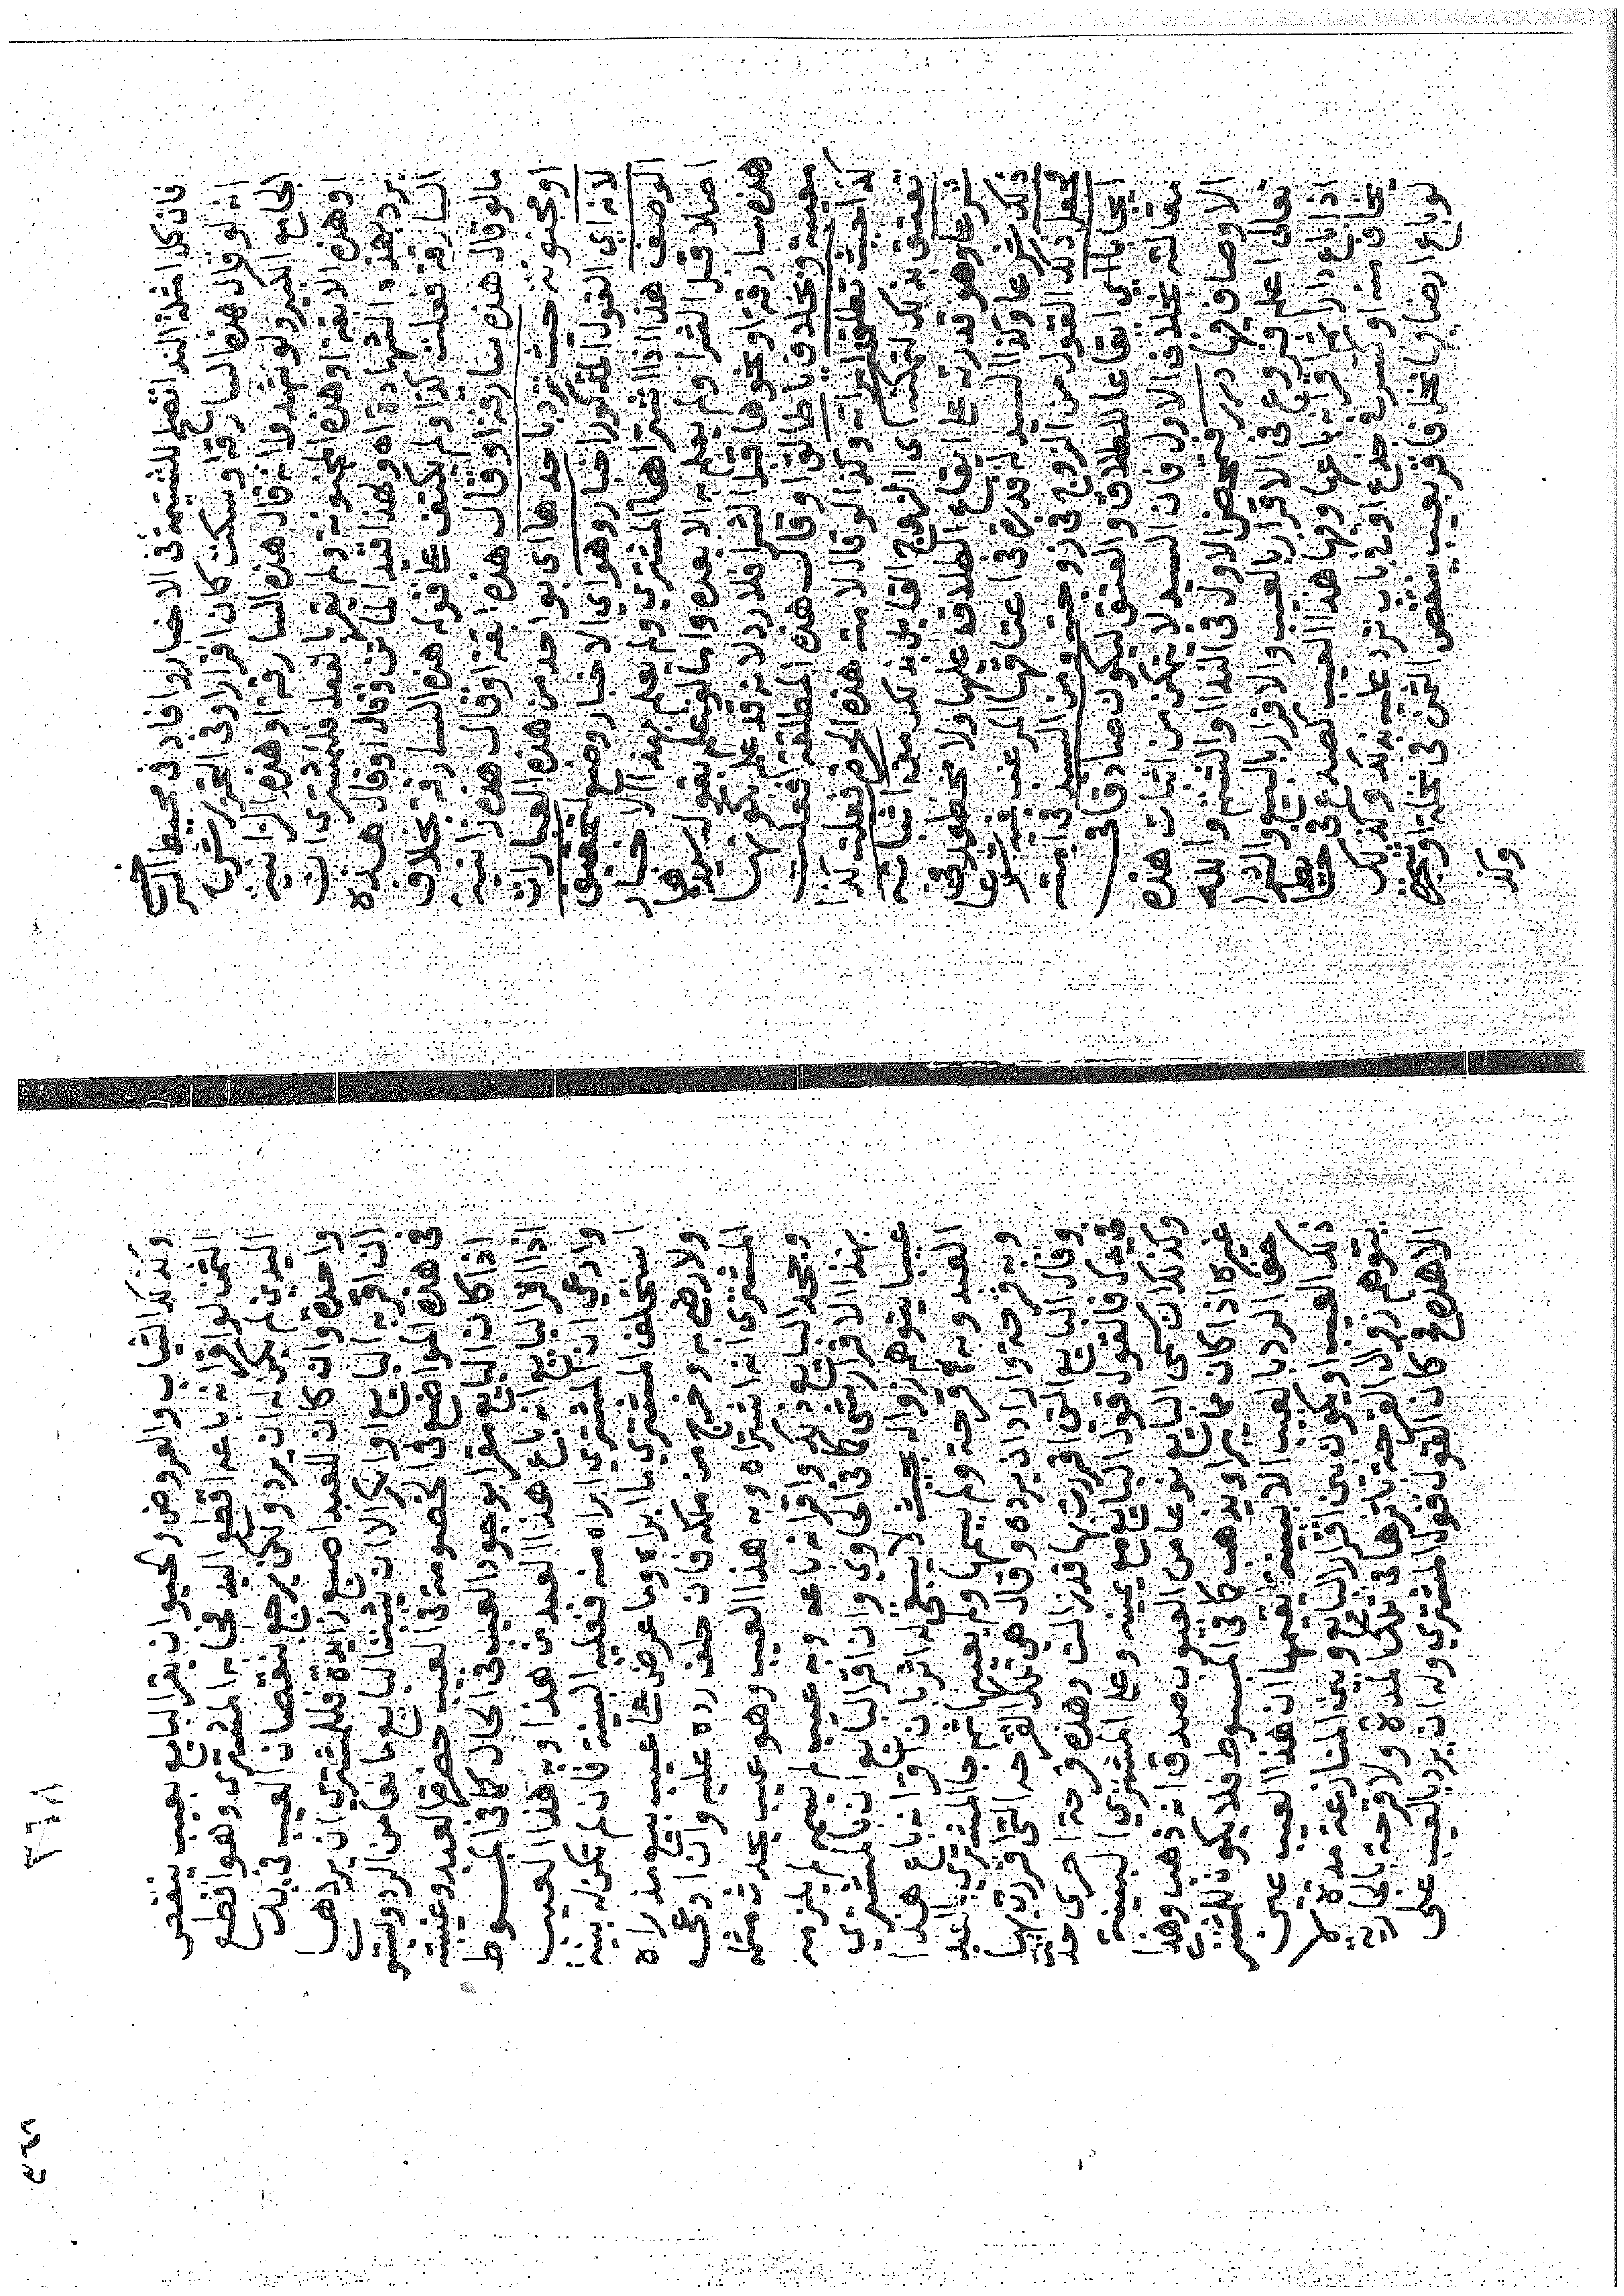 فان كل امثلة الندا تصلح للشتيمة في الاخبار وافاد في محيط السرخسي
انه لو قال هذه السارقة وسكت كان اقرارا وفي التحرير شرح
الجامع الكبير ولو شهدوا انه قال هذه السارقة او هذه الزانية
او هذه الابقة او هذه المجنونة ولم يقر بالفعل فللمشتري ان
يرد بهذه الشهادة اه وهذا فيد الحاتن وقال او قال هذه
السارقة فعلت كذا ولم يكتف على قوله هذه السارقة بخلاف
ما لو قال هذه سارقة او قال هذه ابقة او قال هذه زانية
او مجنونة حيث ترد باحدها اي بواحد من هذه العبارات
لانه اي القول المذكور اخبار وهو اي الاخبار وضع لتحقيق
الوصف هذا اذا اشتراها المشتري ولم يعلم بهذا الاخبار
اصلا قبل الشرا ولم يعلم به الا بعده واما لو علم بقول سيدها
هذه سارقة او نحوها قبل الشرا فلا رد لانه قد علم بكونها
معيبة وبخلاف يا طالق او قال هذه المطلقة فعلت
كذا حيث تطلق امراته وكذا لو قال لامته هذه الحرة فعلت كذا
تعتق بذلك لتمكنه اي الزوج القايل بذلك من اثباته
شرعا وهو قدرته على ايقاع الطلاق عليها ولا محظور فيه
ذلك شرعا وكذا السيد له قدرة في اعتاقها المرغب فيه شرعا
فجعل ذلك القول من الزوج في زوجته ومن السيد في امته
ايجابا اي ايقاعا للطلاق والعتق ليكون صادقا في
مقالته بخلاف الاول فان السيد لا يتمكن من اثبات هذه
الاوصاف فيها درر فتمحض الاول في الندا والشتم والله
تعالى اعلم فروع في الاقرار بالعيب والاقرار بالبيع والشرا
اذا باع دارا ثم اقر انه باعها وبها هذا العيب كصدع في حايط
يخاف منه او كسر في جذع او في باب ترد عليه بذلك وكذلك
لو باع ارضا وبها نخل فاقر بعيب ينقص الثمن في نخلة او شجرة
وكذ
وكذلك الثياب والعروض والحيوان يقر البايع بعيب ينقص
الثمن لو اقر انه باعه اقطع اليد فجا به المشتري وهو اقطع
اليدين لم يكن له ان يرد ولكن يرجع بنقصان العيب في يد
واحدة وان كان للعبد اصبع زايدة فللمشتري ان يردها
ان اقر به البايع او انكر الا ان يثبت البايع مانعا من الرد ويستوي
في هذه المواضع في الخصومة في العيب حضرة العبد وغيبته
اذا كان البايع مقرا بوجود العيب في الحال كما في المبسوط
اذا اقر البايع انه باع هذا العبد من هذا وبه هذا العيب
وادعى ان المشتري ابراه منه فعليه البينة فان لم تكن له بينة
استحلف المشتري ما ابراه وما عرض على عيب ببيع مذ راه
ولا رضي به وخرج من ملكه فان حلف رده عليه وان ادعى
المشتري انه اشتراه وبه هذا العيب وهو عيب يحدث مثله
وجحد البايع ذلك واقر انه باعه وبه عيب لم يسمه لم يلزمه
بهذا الاقرار شي كما في الحاوي وان اقر البايع ان بالمشتري
عيبا يتوهم زواله بحيث لا يبقى له اثر بان اقر انه باع هذا
العبد وبه قرحة ولم يسمها ولم يعينها ثم جا المشتري بالعبد
وبه قرحة واراد ان يرده وقال هي تلك القرحه التي اقررت بها
وقال البايع التي اقررت بها قد زالت وهذه قرحة اخرى حدثت
في يدك فالقول قول البايع مع يمينه وعلى المشتري البينة
وكذلك ان سمى البايع نوعا من العيوب صدق انه ذهب وهذا
غيره اذا كان مما يبرا ويذهب كما في المبسوط فلا يكون للمشتري
حق الرد بالعيب الا ببينة يقيمها ان هذا العيب عين
ذلك العيب او يكون بين اقرار البايع وبين المنازعة مدة لا
يتوهم زوال القرحة باثرها في تلك المدة ولا قرحة بالجارية
الا هذه كان القول قول المشتري وله ان يرد بالعيب عنى
٣٦٨
٣٦٩